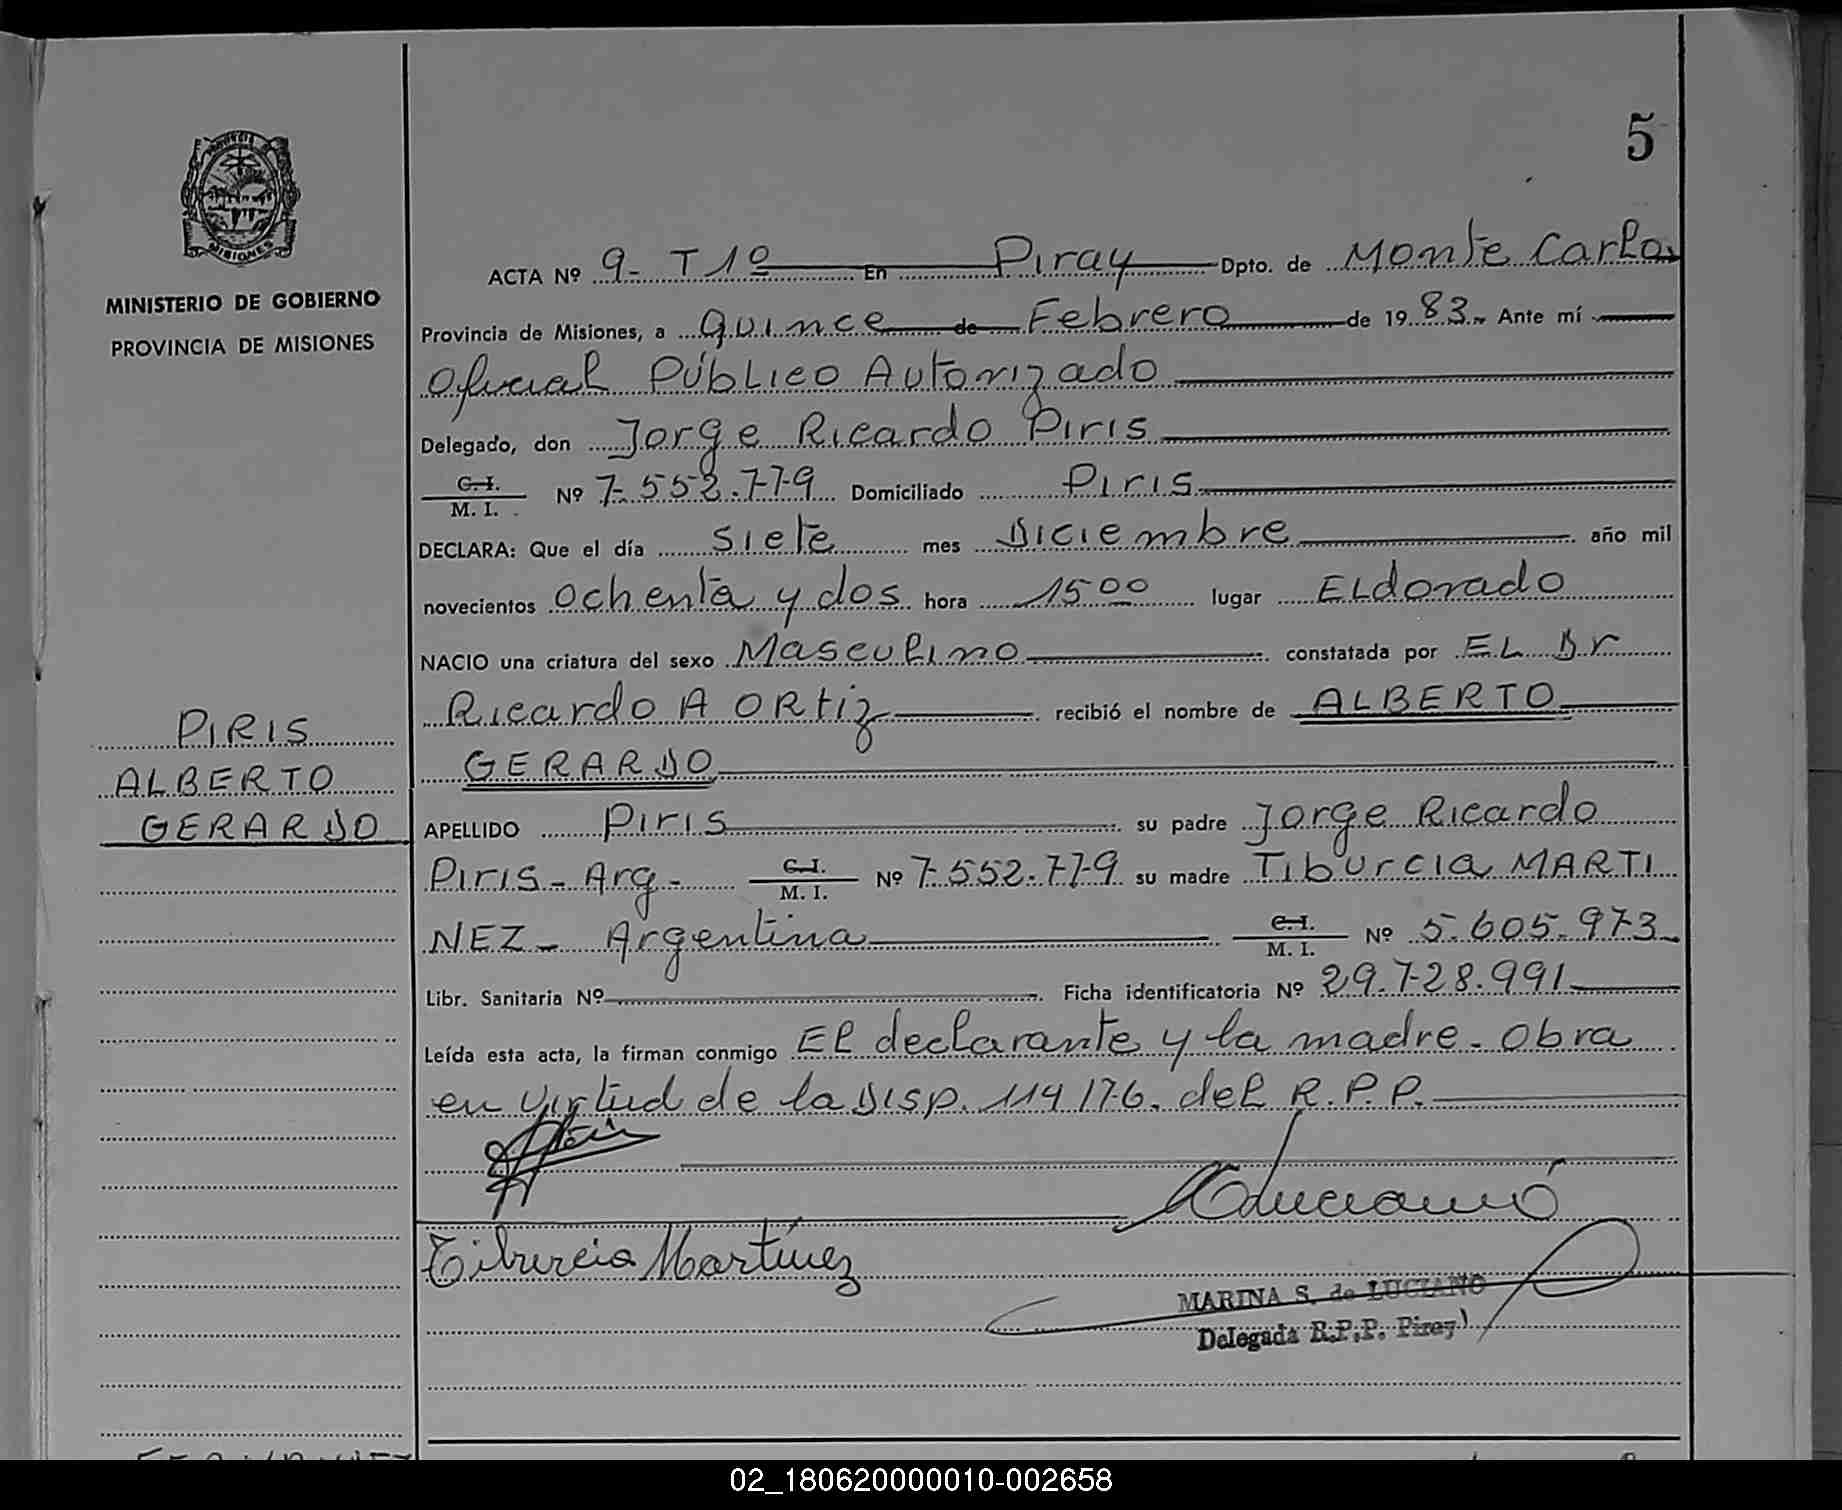 5
MISIONES
MINISTERIO DE GOBIERNO
PROVINCIA DE MISIONES
ACTA Nº 9- T 1º En Piray Dpto. de Monte Carlo
Provincia de Misiones, a quince de Febrero de 1983- Ante mí
Oficial Público Autorizado
Delegado, don Jorge Ricardo Piris
C.I. / M. I. Nº 7.552.779 Domiciliado Piris
DECLARA: Que el día siete mes Diciembre año mil
novecientos ochenta y dos hora 15 00 lugar Eldorado
NACIO una criatura del sexo Masculino constatada por EL Dr
Ricardo A ORtiz recibió el nombre de ALBERTO
GERARDO
PIRIS
ALBERTO
GERARDO
APELLIDO Piris su padre Jorge Ricardo
Piris - Arg - C.I. / M. I. Nº 7.552.779 su madre Tiburcia MARTI
NEZ - Argentina C.I. / M. I. Nº 5.605.973
Libr. Sanitaria Nº Ficha identificatoria Nº 29.728.991
Leída esta acta, la firman conmigo El declarante y la madre - Obra
en virtud de la Disp. 114/76. del R.P.P.
Tiburcia Martínez
MARINA S. de LUCIANO
Delegada R.P.P. Piray
02_180620000010-002658